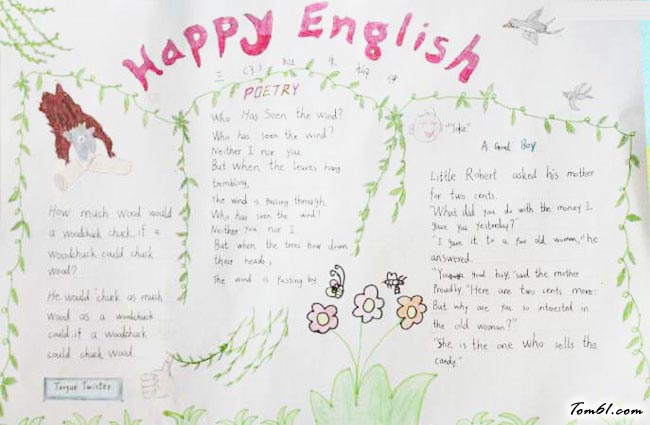 Happy English
三 (3)
POETRY
Who Has Seen the wind?
Who has seen the wind?
Neither I nor you.
But when the leaves hang
trembling,
The wind is passing through.
Who has seen the wind?
Neither you nor I
But when the trees bow down
their heads,
The wind is passing by
How much wood would
a woodchuck chuck if a
woodchuck could chuck
wood?
He would chuck as much
wood as a woodchuck
could if a woodchuck
could chuck wood
Tongue Twister
"Joke"
A Good Boy
Little Robert asked his mother
for two cents.
"What did you do with the money I
gave you yesterday?"
"I gave it to a poor old woman," he
answered.
good boy," said the mother
Proudly "Here are two cents more.
But why are you so interested in
the old woman?"
"She is the one who sells the
candy."
Tom61.com